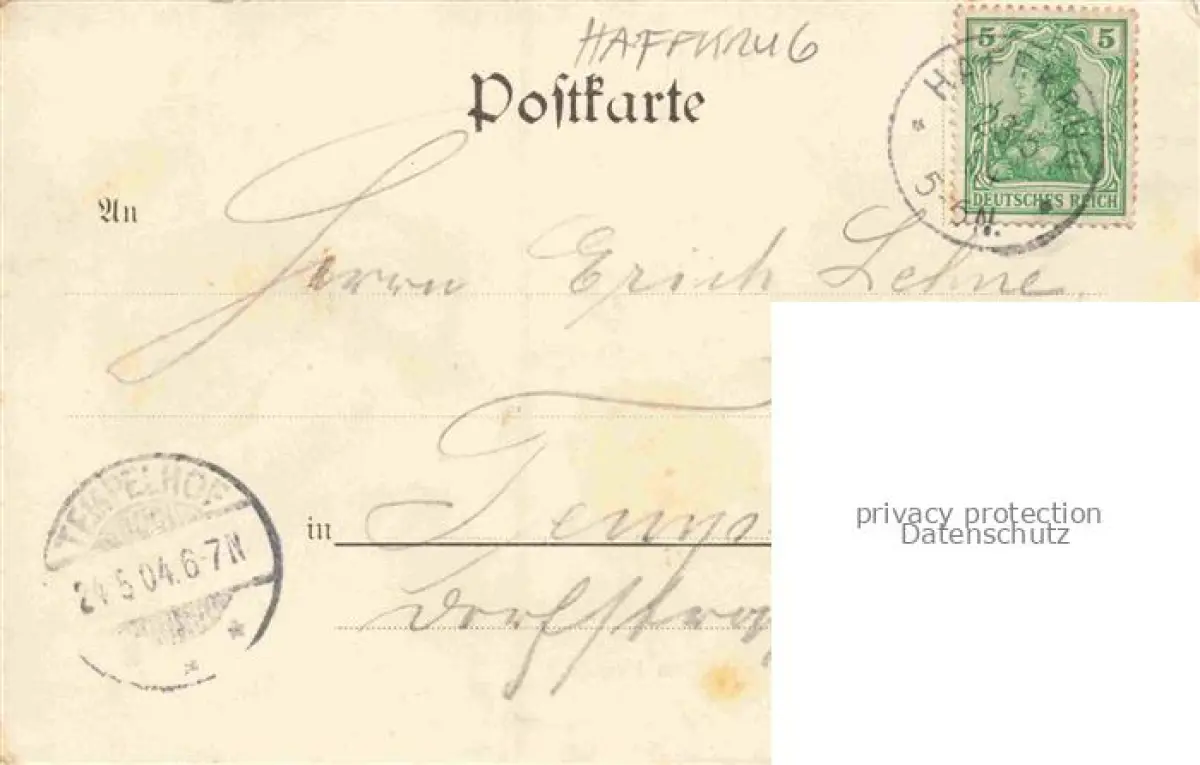 HAFFKRUG
Postkarte
5 5
HAFFKRUG
23.5.
5-6N.
DEUTSCHES REICH
An
Herrn Erich Lehne
TEMPELHOF
24.5.04.6-7N
in
Temp
Dorfstra
privacy protection
Datenschutz